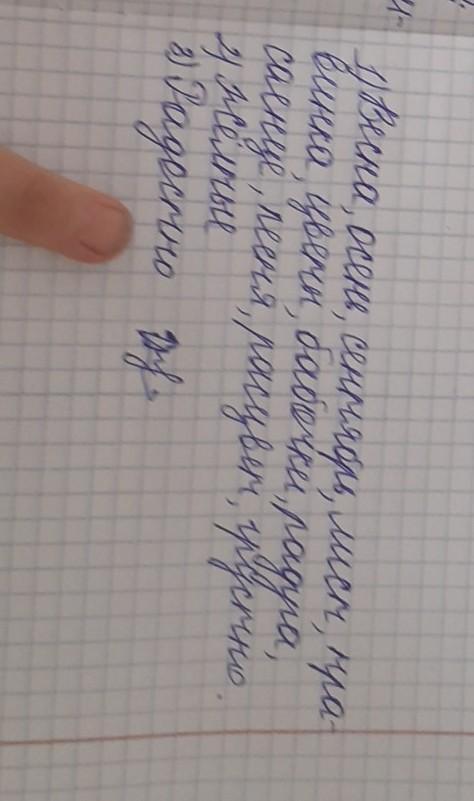 1) Весна, осень, сентябрь, лист, тра-
винка, цветы, бабочки, радуга,
сонце, песня, расцвет, грустно.
2) Жёлтые
3) Радостно